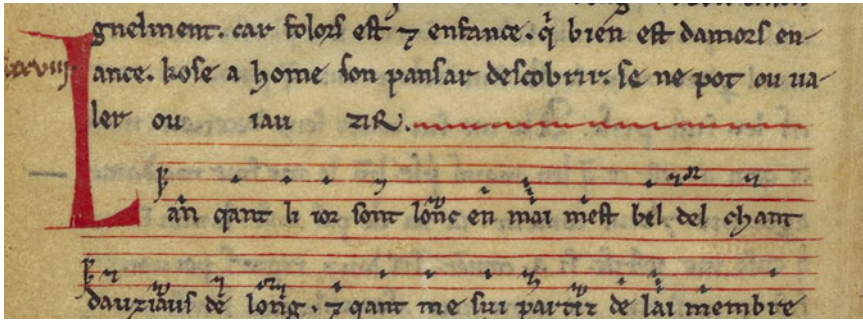 gnelment. car folors est ⁊ enfance. q̃ bien est damors en-
lxxxviii. ance. kose a home son pansar descobrir. se ne pot ou ua-
ler ou iau zir.
Lan qant li ior sont lonc en mai mest bel del chant
dauziaus de long. ⁊ qant me sui partiz de lai membre